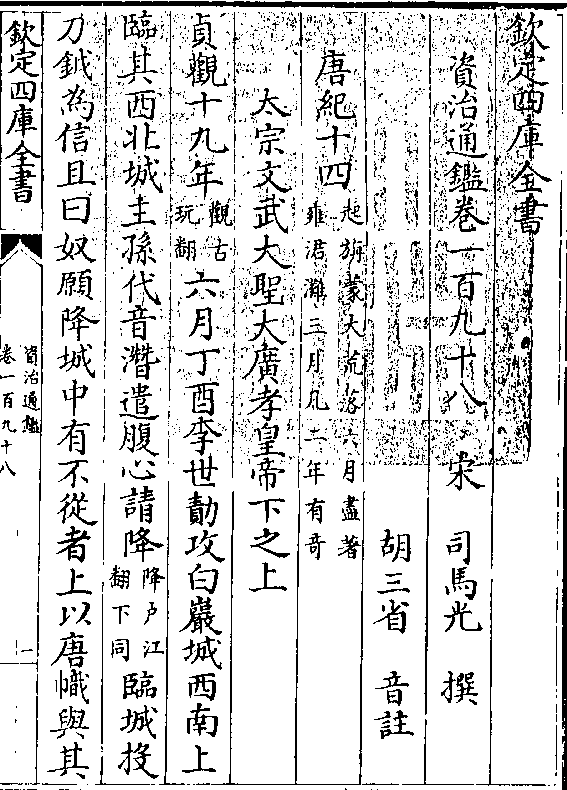 欽定四庫全書
資治通鑑卷一百九十八 宋 司馬光 撰
胡三省 音註
唐紀十四 起旃蒙大荒落六月盡著雍涒灘三月凡二年有奇
太宗文武大聖大廣孝皇帝下之上
貞觀十九年 觀古玩翻 六月丁酉李世勣攻白巖城西南上
臨其西北城主孫代音濳遣腹心請降 降户江翻下同 臨城投
刀鉞為信且曰奴願降城中有不從者上以唐幟與其
欽定四庫全書
資治通鑑
卷一百九十八
一